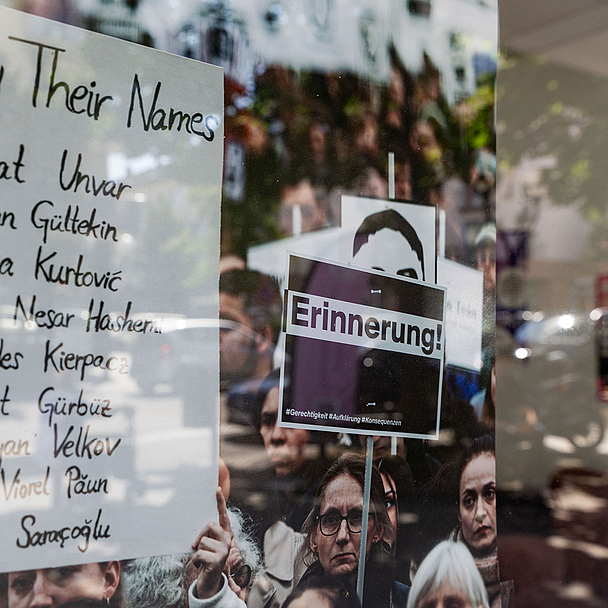 Their Names
at Unvar
n Gültekin
a Kurtović
Nesar Hashemi
les Kierpacz
t Gürbüz
yan Velkov
Viorel Păun
Saraçoğlu
Erinnerung!
#Gerechtigkeit #Aufklärung #Konsequenzen